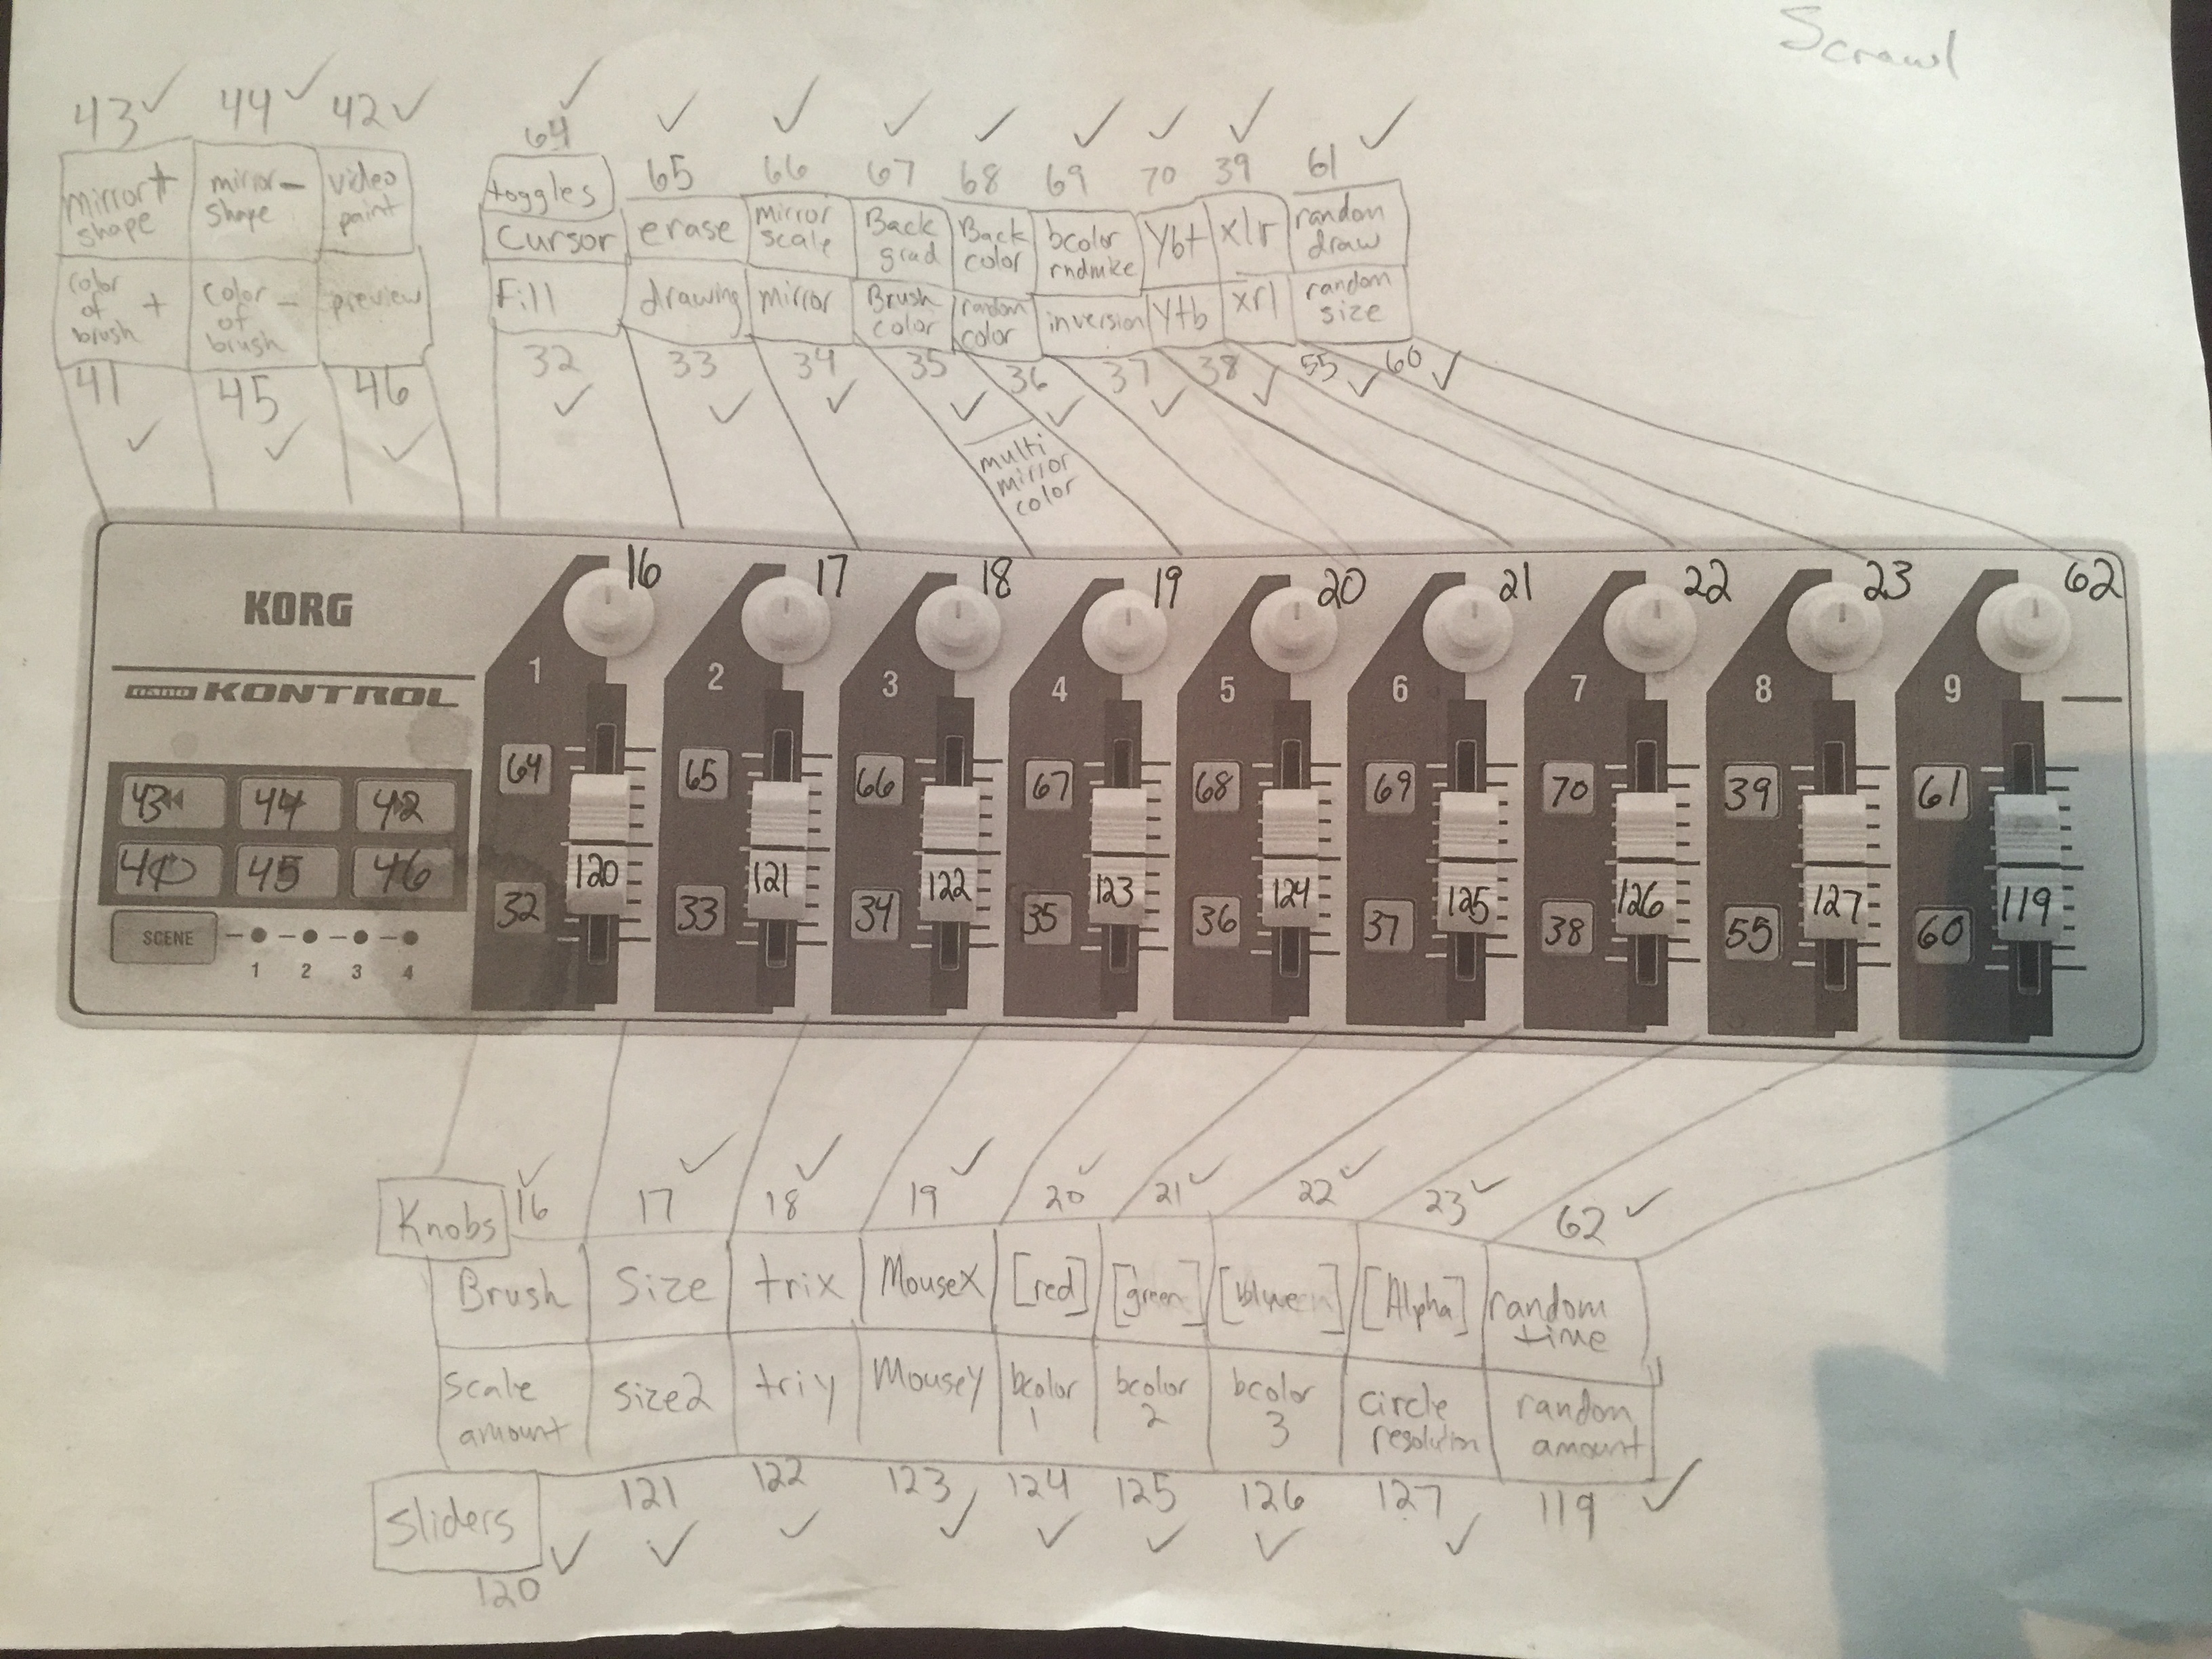 Scrawl
43 ✓ 44 ✓ 42 ✓
✓ ✓ ✓ ✓ ✓ ✓ ✓ ✓ ✓
64 65 66 67 68 69 70 39 61
Mirror +
shape
mirror -
shape
video
paint
color
of
brush +
color -
of
brush
preview
41 45 46
✓ ✓ ✓
toggles
cursor
erase
mirror
scale
Back
grad
Back
color
bcolor
ybt
xlr
random
draw
Fill
drawing
mirror
Brush
color
random
color
inversion
ytb
xrl
random
size
32 33 34 35 36 37 38 55 60
✓ ✓ ✓ ✓ ✓ ✓ ✓ ✓ ✓
multi
mirror
color
16 17 18 19 20 21 22 23 62
KORG
nano KONTROL
1 2 3 4 5 6 7 8 9
64 65 66 67 68 69 70 39 61
43 44 42
41 45 46
120 121 122 123 124 125 126 127 119
32 33 34 35 36 37 38 55 60
SCENE
1 2 3 4
✓ ✓ ✓ ✓ ✓ ✓ ✓ ✓ ✓
Knobs 16 17 18 19 20 21 22 23 62
Brush
Size
trix
MouseX
[red]
[green]
[Alpha]
random
time
scale
amount
size2
triy
MouseY
bcolor
1
bcolor
2
bcolor
3
circle
resolution
random
amount
Sliders
120 121 122 123 124 125 126 127 119
✓ ✓ ✓ ✓ ✓ ✓ ✓ ✓ ✓